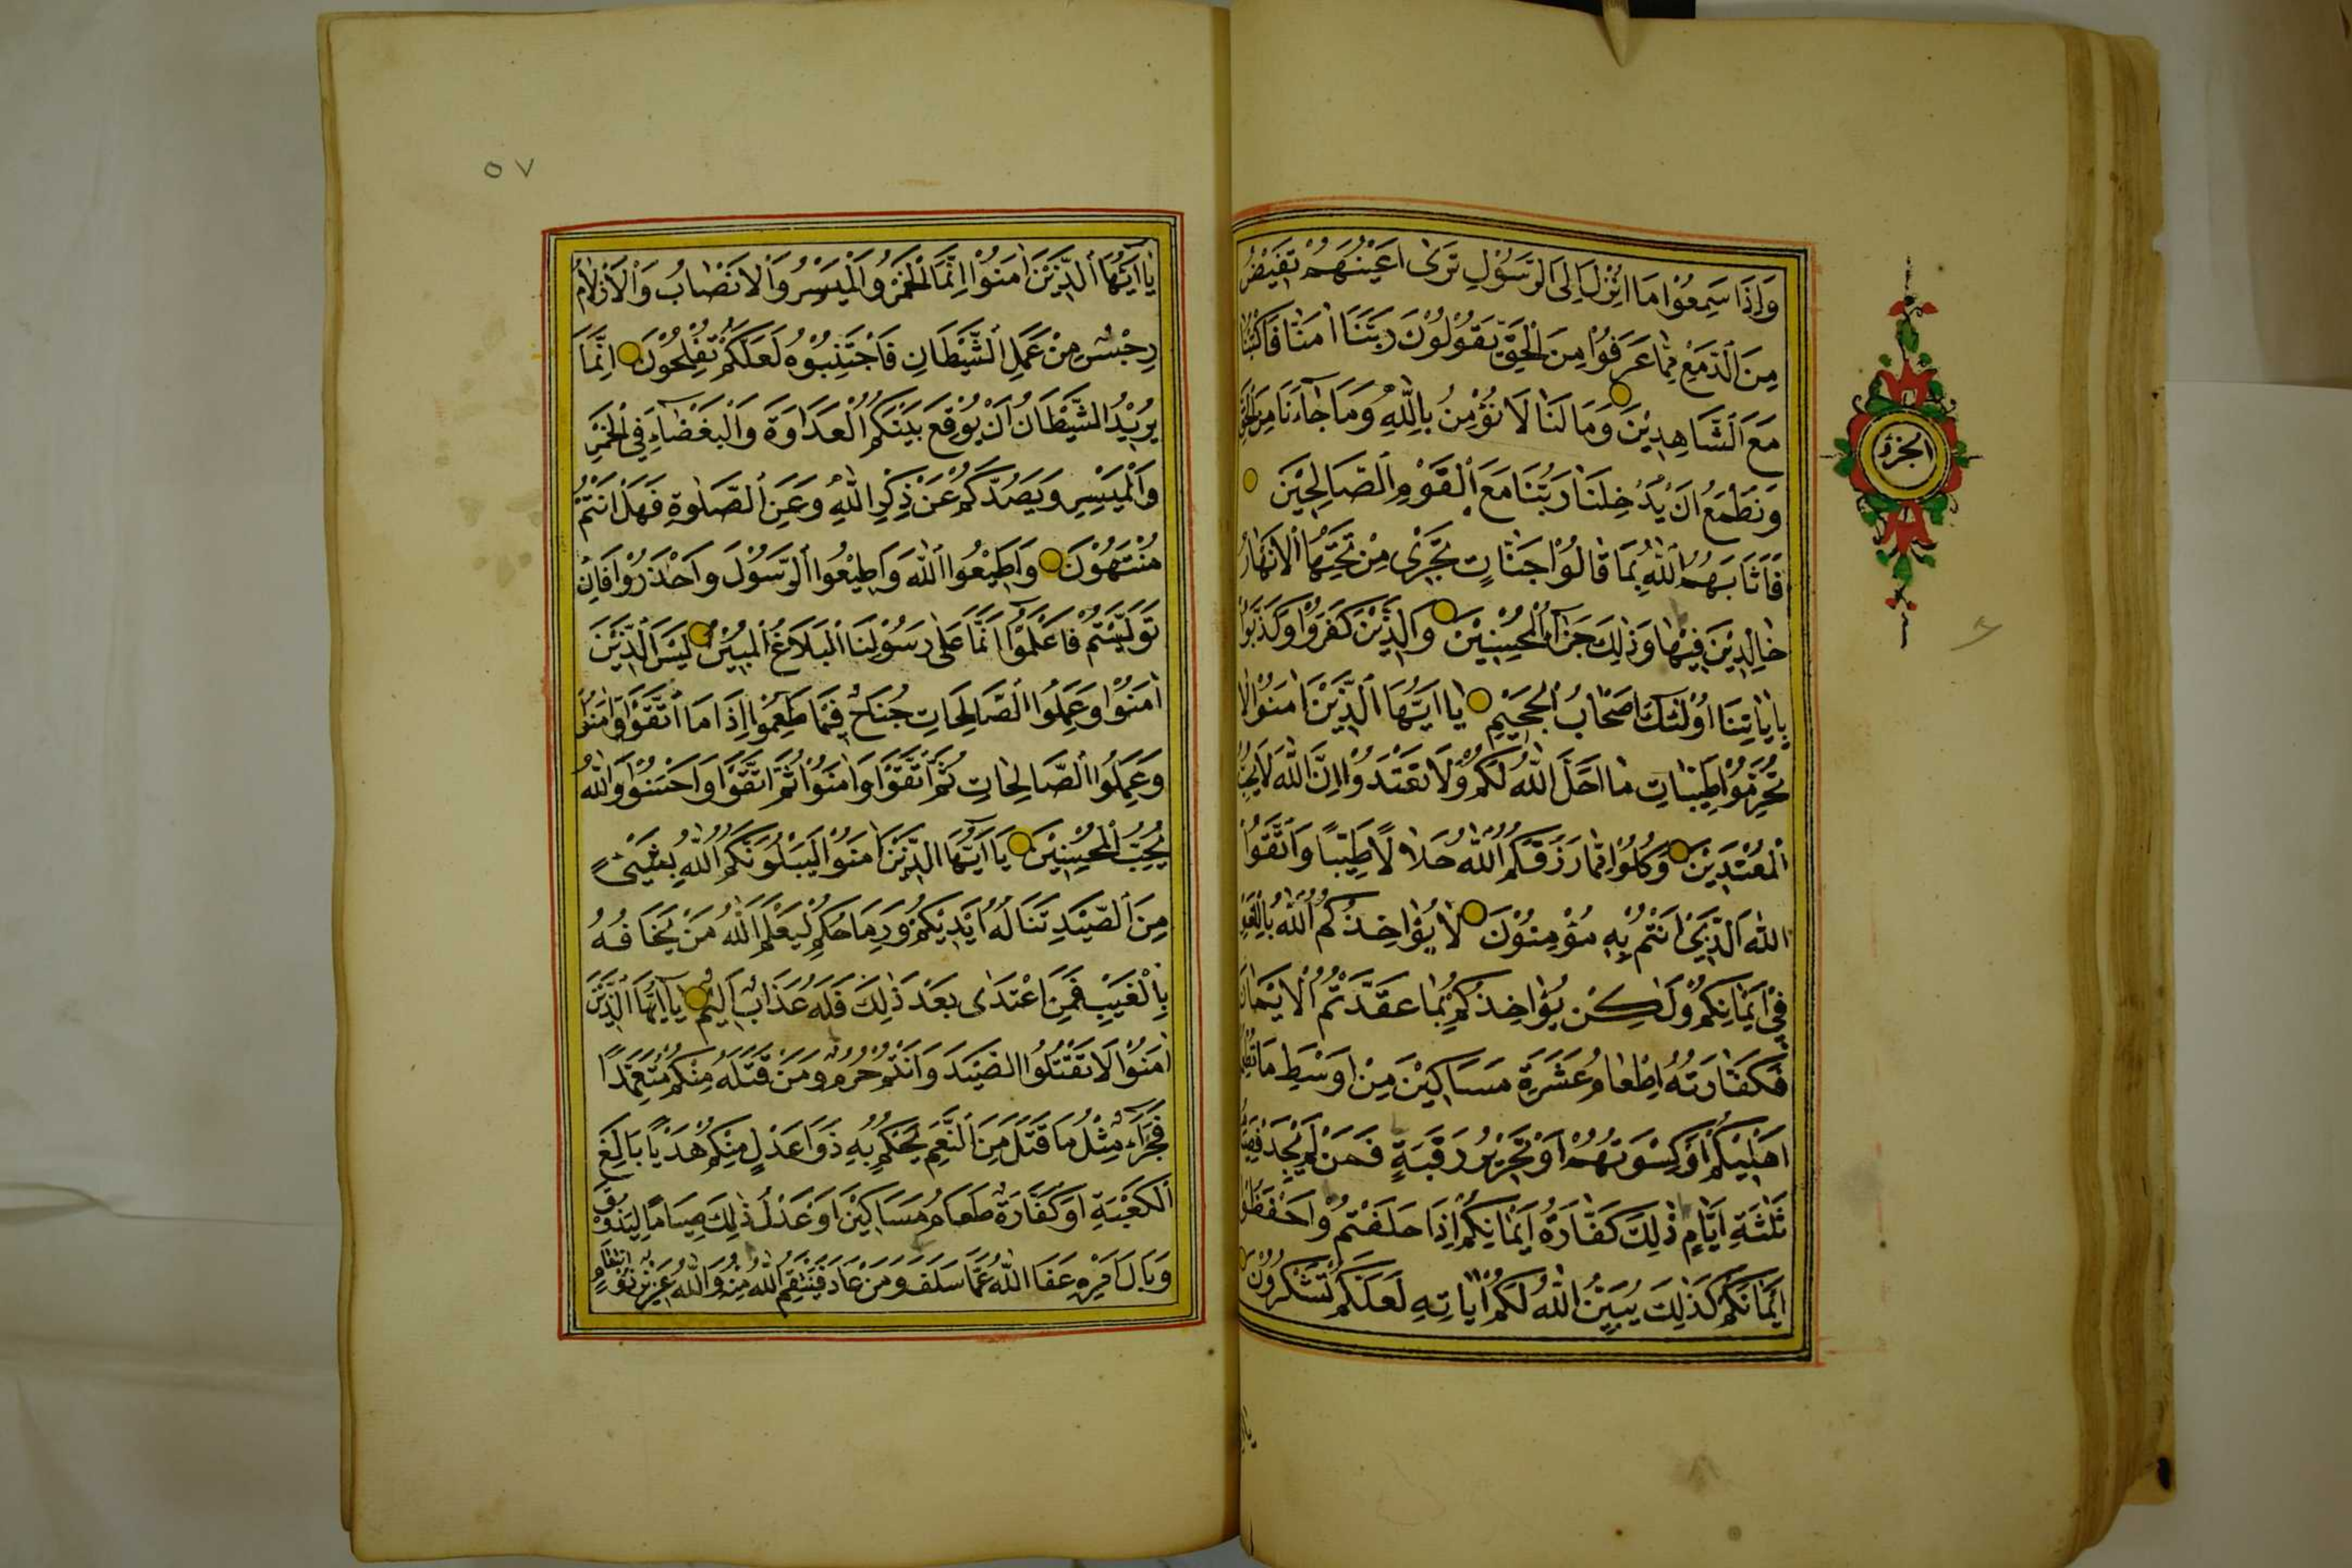 وَاِذَا سَمِعُوْا مَا اُنْزِلَ اِلَى الرَّسُوْلِ تَرٰى اَعْيُنَهُمْ تَفِيْضُ
مِنَ الدَّمْعِ مِمَّا عَرَفُوْا مِنَ الْحَقِّ يَقُوْلُوْنَ رَبَّنَا اٰمَنَّا فَاكْتُبْنَا
مَعَ الشَّاهِدِيْنَ وَمَا لَنَا لَا نُؤْمِنُ بِاللّٰهِ وَمَا جَاءَنَا مِنَ الْحَقِّ
وَنَطْمَعُ اَنْ يُدْخِلَنَا رَبُّنَا مَعَ الْقَوْمِ الصَّالِحِيْنَ
فَاَثَابَهُمُ اللّٰهُ بِمَا قَالُوْا جَنَّاتٍ تَجْرِيْ مِنْ تَحْتِهَا الْاَنْهَارُ
خَالِدِيْنَ فِيْهَا وَذٰلِكَ جَزَآءُ الْمُحْسِنِيْنَ وَالَّذِيْنَ كَفَرُوْا وَكَذَّبُوْا
بِاٰيَاتِنَا اُولٰئِكَ اَصْحَابُ الْجَحِيْمِ يَا اَيُّهَا الَّذِيْنَ اٰمَنُوْا لَا
تُحَرِّمُوْا طَيِّبَاتِ مَا اَحَلَّ اللّٰهُ لَكُمْ وَلَا تَعْتَدُوْا اِنَّ اللّٰهَ لَا يُحِبُّ
الْمُعْتَدِيْنَ وَكُلُوْا مِمَّا رَزَقَكُمُ اللّٰهُ حَلَالًا طَيِّبًا وَاتَّقُوْا
اللّٰهَ الَّذِيْ اَنْتُمْ بِهِ مُؤْمِنُوْنَ لَا يُؤَاخِذُكُمُ اللّٰهُ بِاللَّغْوِ
فِيْ اَيْمَانِكُمْ وَلٰكِنْ يُؤَاخِذُكُمْ بِمَا عَقَّدْتُمُ الْاَيْمَانَ
فَكَفَّارَتُهُ اِطْعَامُ عَشَرَةِ مَسَاكِيْنَ مِنْ اَوْسَطِ مَا تُطْعِمُوْنَ
اَهْلِيْكُمْ اَوْ كِسْوَتُهُمْ اَوْ تَحْرِيْرُ رَقَبَةٍ فَمَنْ لَمْ يَجِدْ فَصِيَامُ
ثَلٰثَةِ اَيَّامٍ ذٰلِكَ كَفَّارَةُ اَيْمَانِكُمْ اِذَا حَلَفْتُمْ وَاحْفَظُوْا
اَيْمَانَكُمْ كَذٰلِكَ يُبَيِّنُ اللّٰهُ لَكُمْ اٰيَاتِهِ لَعَلَّكُمْ تَشْكُرُوْنَ
الجزؤ
٥٧
يَا اَيُّهَا الَّذِيْنَ اٰمَنُوْا اِنَّمَا الْخَمْرُ وَالْمَيْسِرُ وَالْاَنْصَابُ وَالْاَزْلَامُ
رِجْسٌ مِنْ عَمَلِ الشَّيْطَانِ فَاجْتَنِبُوْهُ لَعَلَّكُمْ تُفْلِحُوْنَ اِنَّمَا
يُرِيْدُ الشَّيْطَانُ اَنْ يُوْقِعَ بَيْنَكُمُ الْعَدَاوَةَ وَالْبَغْضَآءَ فِي الْخَمْرِ
وَالْمَيْسِرِ وَيَصُدَّكُمْ عَنْ ذِكْرِ اللّٰهِ وَعَنِ الصَّلٰوةِ فَهَلْ اَنْتُمْ
مُنْتَهُوْنَ وَاَطِيْعُوا اللّٰهَ وَاَطِيْعُوا الرَّسُوْلَ وَاحْذَرُوْا فَاِنْ
تَوَلَّيْتُمْ فَاعْلَمُوْا اَنَّمَا عَلٰى رَسُوْلِنَا الْبَلَاغُ الْمُبِيْنُ لَيْسَ عَلَى الَّذِيْنَ
اٰمَنُوْا وَعَمِلُوا الصَّالِحَاتِ جُنَاحٌ فِيْمَا طَعِمُوْا اِذَا مَا اتَّقَوْا وَاٰمَنُوْا
وَعَمِلُوا الصَّالِحَاتِ ثُمَّ اتَّقَوْا وَاٰمَنُوْا ثُمَّ اتَّقَوْا وَاَحْسَنُوْا وَاللّٰهُ
يُحِبُّ الْمُحْسِنِيْنَ يَا اَيُّهَا الَّذِيْنَ اٰمَنُوْا لَيَبْلُوَنَّكُمُ اللّٰهُ بِشَيْءٍ
مِنَ الصَّيْدِ تَنَالُهُ اَيْدِيْكُمْ وَرِمَاحُكُمْ لِيَعْلَمَ اللّٰهُ مَنْ يَخَافُهُ
بِالْغَيْبِ فَمَنِ اعْتَدٰى بَعْدَ ذٰلِكَ فَلَهُ عَذَابٌ اَلِيْمٌ يَا اَيُّهَا الَّذِيْنَ
اٰمَنُوْا لَا تَقْتُلُوا الصَّيْدَ وَاَنْتُمْ حُرُمٌ وَمَنْ قَتَلَهُ مِنْكُمْ مُتَعَمِّدًا
فَجَزَآءٌ مِثْلُ مَا قَتَلَ مِنَ النَّعَمِ يَحْكُمُ بِهِ ذَوَا عَدْلٍ مِنْكُمْ هَدْيًا بَالِغَ
الْكَعْبَةِ اَوْ كَفَّارَةٌ طَعَامُ مَسَاكِيْنَ اَوْ عَدْلُ ذٰلِكَ صِيَامًا لِيَذُوْقَ
وَبَالَ اَمْرِهِ عَفَا اللّٰهُ عَمَّا سَلَفَ وَمَنْ عَادَ فَيَنْتَقِمُ اللّٰهُ مِنْهُ وَاللّٰهُ عَزِيْزٌ ذُوْ انْتِقَامٍ